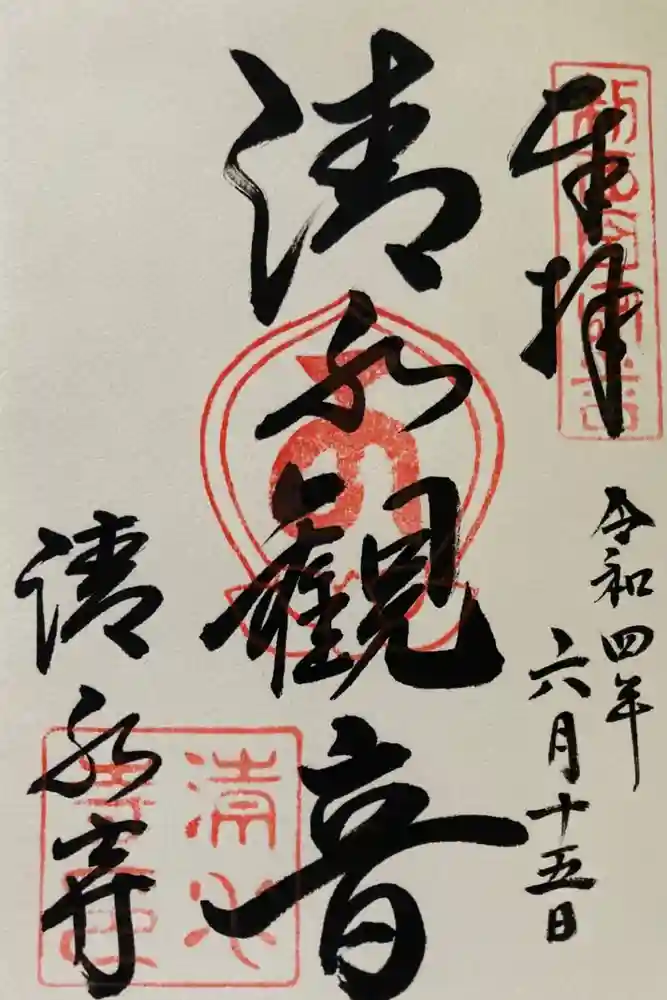 奉拝
令和四年
六月十五日
清水観音
清水寺
清水